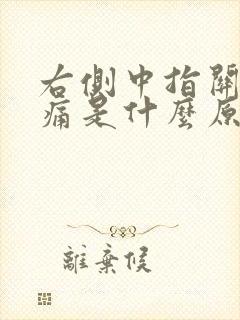 右側中指關
痛是什麼原
離棄候